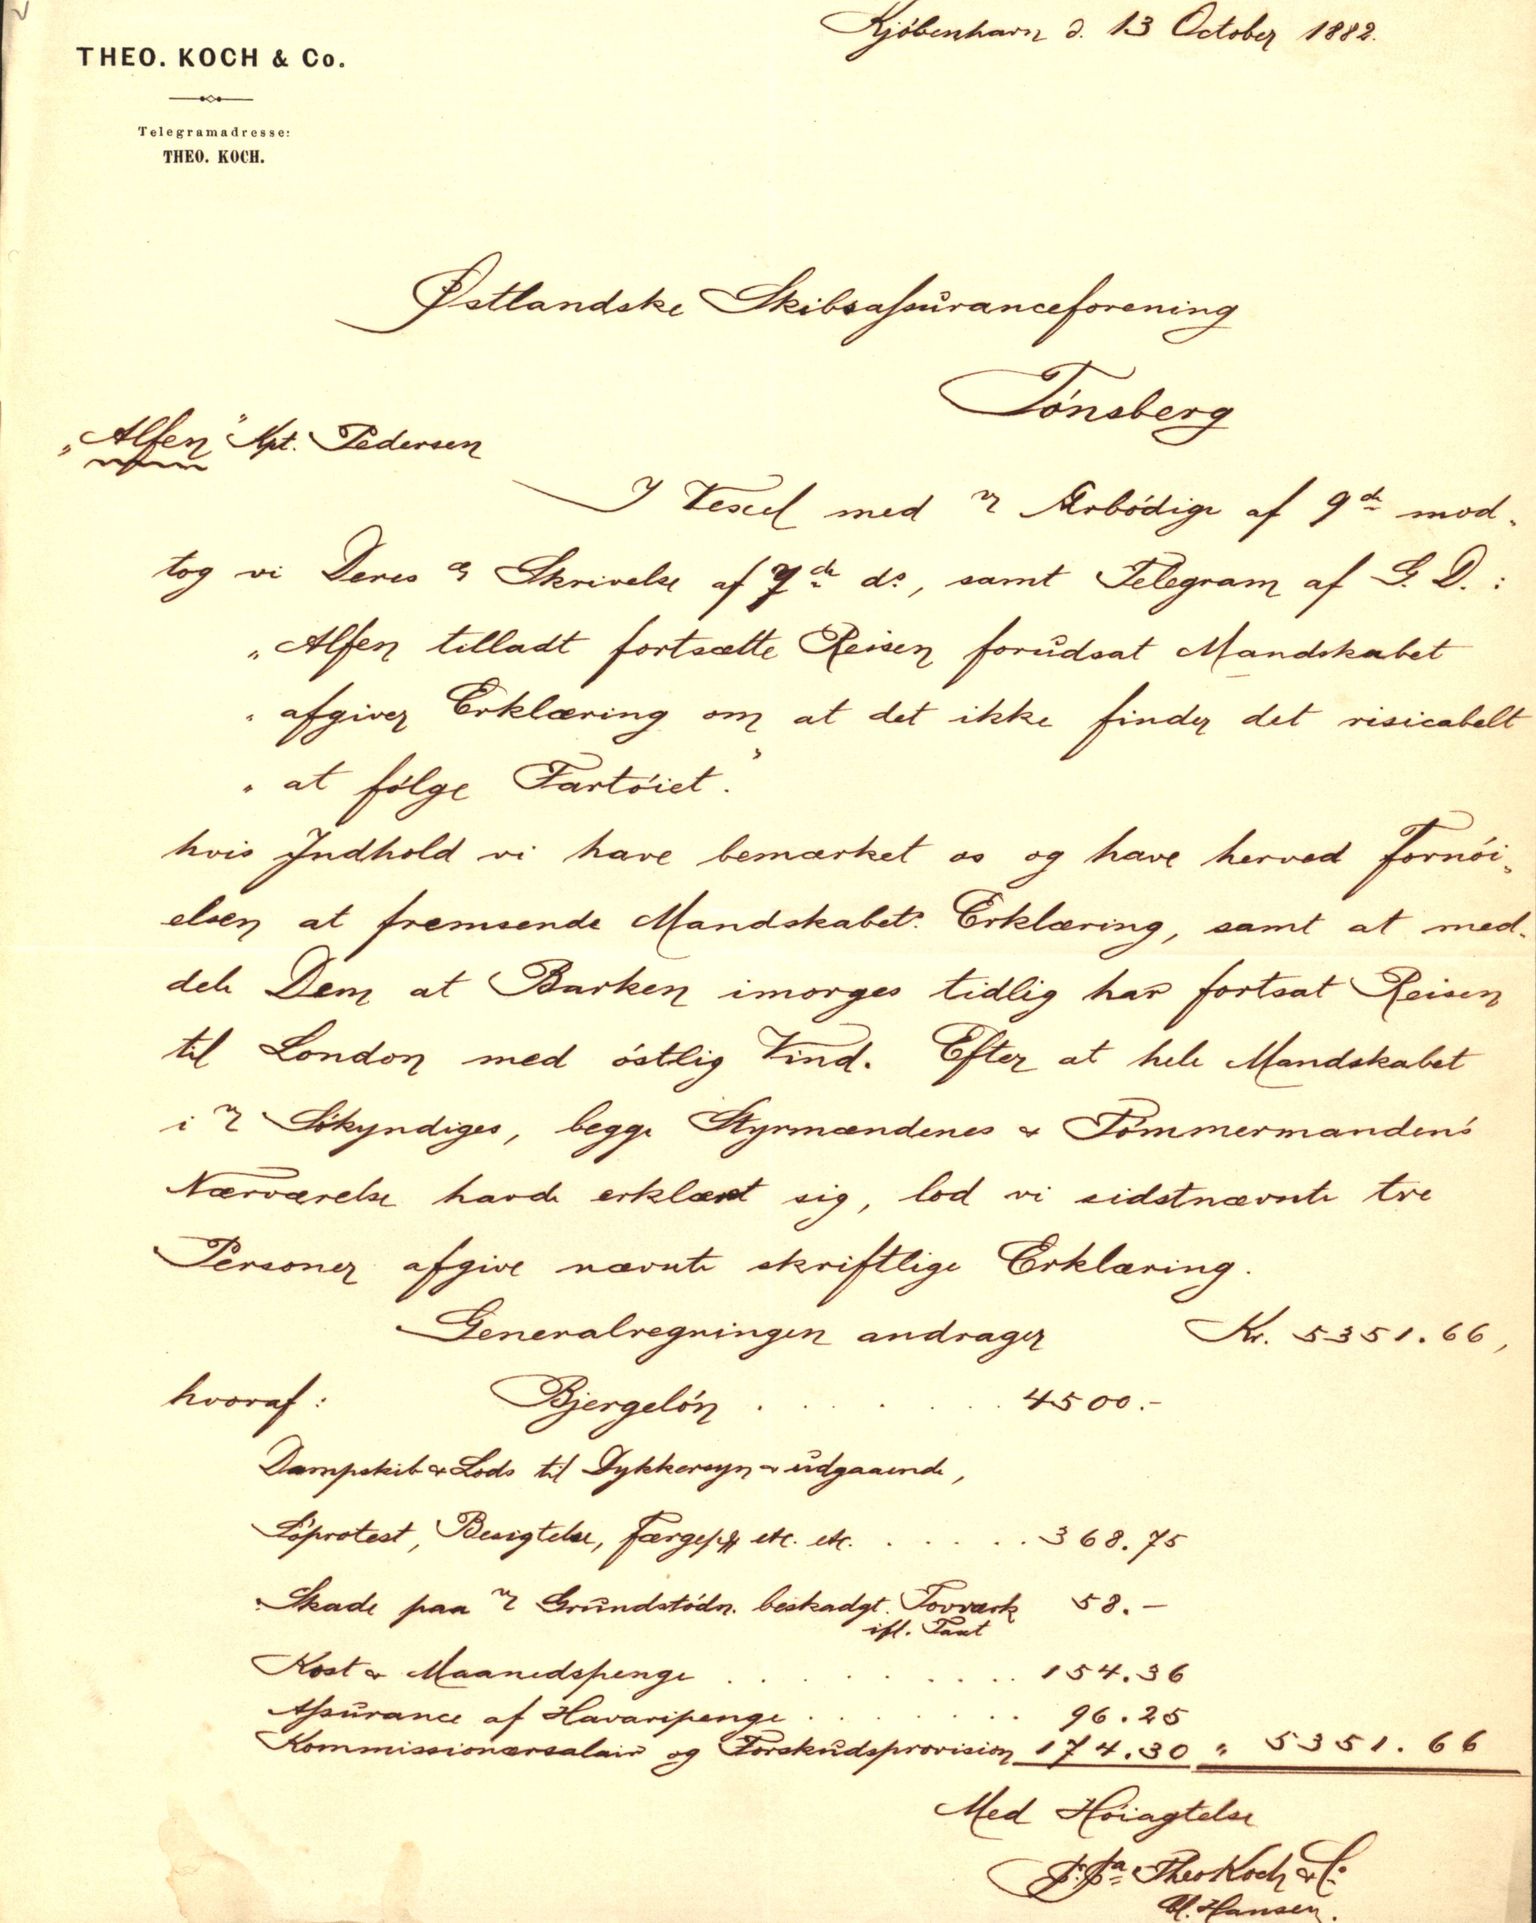 Kjöbenhavn d. 13 October 1882.
THEO. KOCH & Co.
Telegramadresse:
THEO. KOCH.
Østlandske Skibsassuranceforening
Tönsberg
„Alfen" Kpt. Pedersen
I Vexel med Ærbödige af 9de mod-
tog vi Deres Skrivelse af 7de ds, samt Telegram af G. D.:
„Alfen tilladt fortsætte Reisen forudsat Mandskabet
„ afgiver Erklæring om at det ikke finder det risicabelt
„ at fölge Fartöiet."
hvis Indhold vi have bemærket os og have herved Fornöi-
elsen at fremsende Mandskabets Erklæring, samt at med-
dele Dem at Barken imorges tidlig har fortsat Reisen
til London med östlig Vind. Efter at hele Mandskabet
i Sökyndiges, begge Styrmændenes & Tömmermandens
Nærværelse havde erklæret sig, lod vi sidstnævnte tre
Personer afgive nævnte skriftlige Erklæring.
Generalregningen andrager Kr. 5351.66,
hvoraf: Bjergelön . . . . . . 4500.-
Dampskib & Lods til Dykkersyn & udgaaende,
Söprotest, Besigtelse, Færgep etc. etc. . . . . . 368.75
Skade paa Grundstödn. beskadgt. Tovværk 58.-
ifl. Taxt
Kost & Maanedspenge . . . . . . 154.36
Assurance af Havaripenge . . . . . . 96.25
Kommissionærsalair og Forskudsprovision 174.30 „ 5351.66
Med Höiagtelse
p. pa Theo Koch & Co
Hansen.